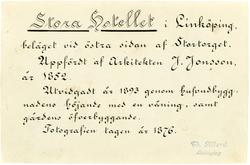 Stora Hotellet i Linköping,
beläget vid östra sidan af Stortorget.
Uppfördt af Arkitekten J. Jonsson,
år 1852.
Utvidgadt år 1893 genom hufvudbygg-
nadens höjande med en våning, samt
gårdens öfverbyggande.
Fotografien tagen år 1876.
Linköping